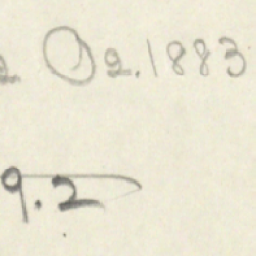 2 O 2.1883
9.2